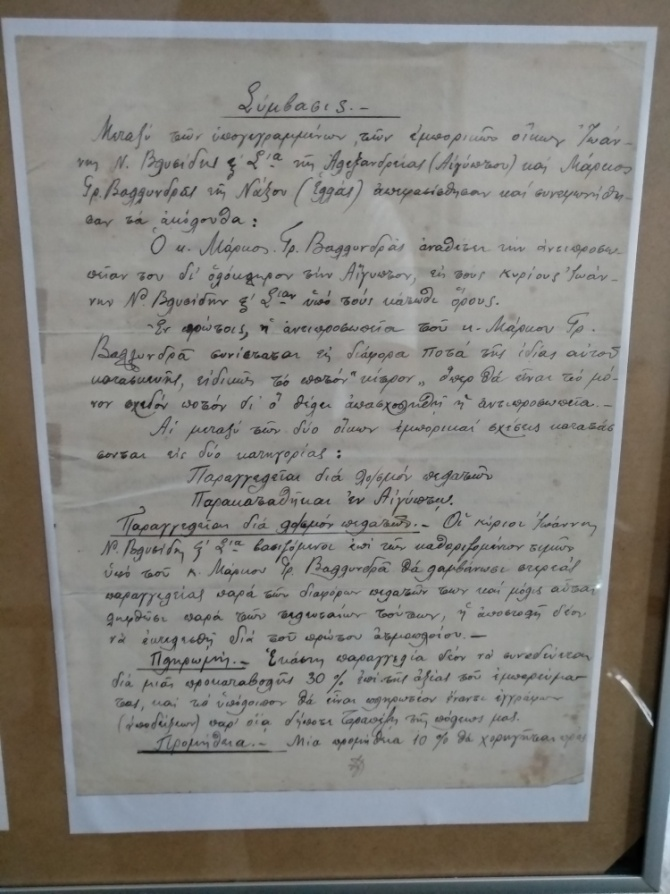 Σύμβασις.-
Μεταξὺ τῶν ὑπογεγραμμένων, τῶν ἐμπορικῶν οἴκων Ἰωάν-
νης Ν. Βλυσίδης & Σία τῆς Ἀλεξανδρείας (Αἰγύπτου) καὶ Μάρκος
Γρ. Βαλληνδρᾶς τῆς Νάξου (Ἑλλὰς) ἀπεφασίσθησαν καὶ συνεφωνήθη-
σαν τὰ ἀκόλουθα:
Ὁ κ. Μάρκος Γρ. Βαλληνδρᾶς ἀναθέτει τὴν ἀντιπροσω-
πείαν του δι' ὁλόκληρον τὴν Αἴγυπτον, εἰς τοὺς κυρίους Ἰωάν-
νην Ν. Βλυσίδην & Σίαν ὑπὸ τοὺς κάτωθι ὅρους.
Ἐν πρώτοις, ἡ ἀντιπροσωπεία τοῦ κ. Μάρκου Γρ.
Βαλληνδρᾶ συνίσταται εἰς διάφορα ποτὰ τῆς ἰδίας αὐτοῦ
κατασκευῆς, εἰδικῶς τὸ ποτὸν "κίτρον" ὅπερ θὰ εἶναι τὸ μό-
νον σχεδὸν ποτὸν δι' ὃ θέλει ἀπασχοληθῆ ἡ ἀντιπροσωπεία.-
Αἱ μεταξὺ τῶν δύο οἴκων ἐμπορικαὶ σχέσεις κατατάσ
σονται εἰς δύο κατηγορίας:
Παραγγελίαι διὰ λ/σμὸν πελατῶν
Παρακαταθῆκαι ἐν Αἰγύπτῳ.
Παραγγελίαι διὰ λο/σμὸν πελατῶν.- Οἱ κύριοι Ἰωάννης
Ν. Βλυσίδης & Σία βασιζόμενοι ἐπὶ τῶν καθοριζομένων τιμῶν
ὑπὸ τοῦ κ. Μάρκου Γρ. Βαλληνδρᾶ θὰ λαμβάνωσι στερεὰς
παραγγελίας παρὰ τῶν διαφόρων πελατῶν των καὶ μόλις αὗται
ληφθῶσι παρὰ τῶν τελευταίων τούτων, ἡ ἀποστολὴ δέον
νὰ ἐκτελεσθῆ διὰ τοῦ πρώτου ἀτμοπλοίου.-
Πληρωμή.- Ἑκάστη παραγγελία δέον νὰ συνοδεύεται
διὰ μιᾶς προκαταβολῆς 30% ἐπὶ τῆς ἀξίας τοῦ ἐμπορεύμα-
τος, καὶ τὸ ὑπόλοιπον θὰ εἶναι πληρωτέον ἔναντι ἐγγράφων
(ἀποδείξεων) παρ' οἵᾳ δήποτε Τραπέζῃ τῆς πόλεως μας.
Προμήθεια.- Μία προμήθεια 10% θὰ χορηγῆται